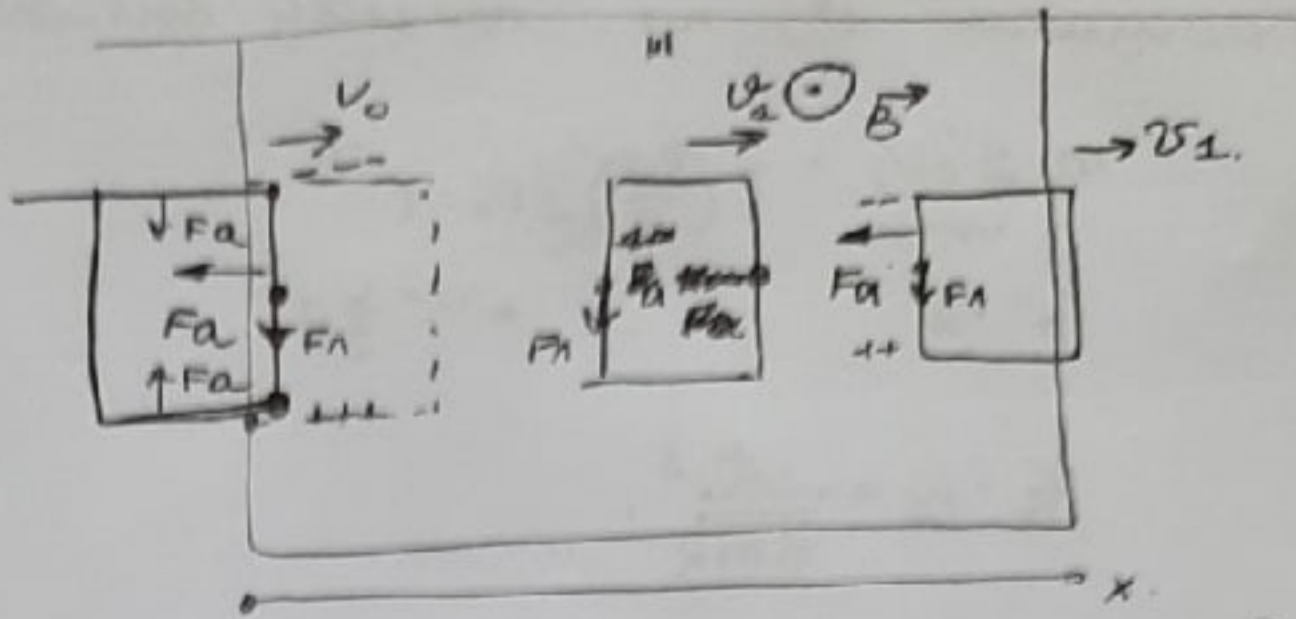 V₀
v₁ B
v1.
---
--
Fa
Fa Fл
Fa
+++
Fл
Fa Fл
++
x.